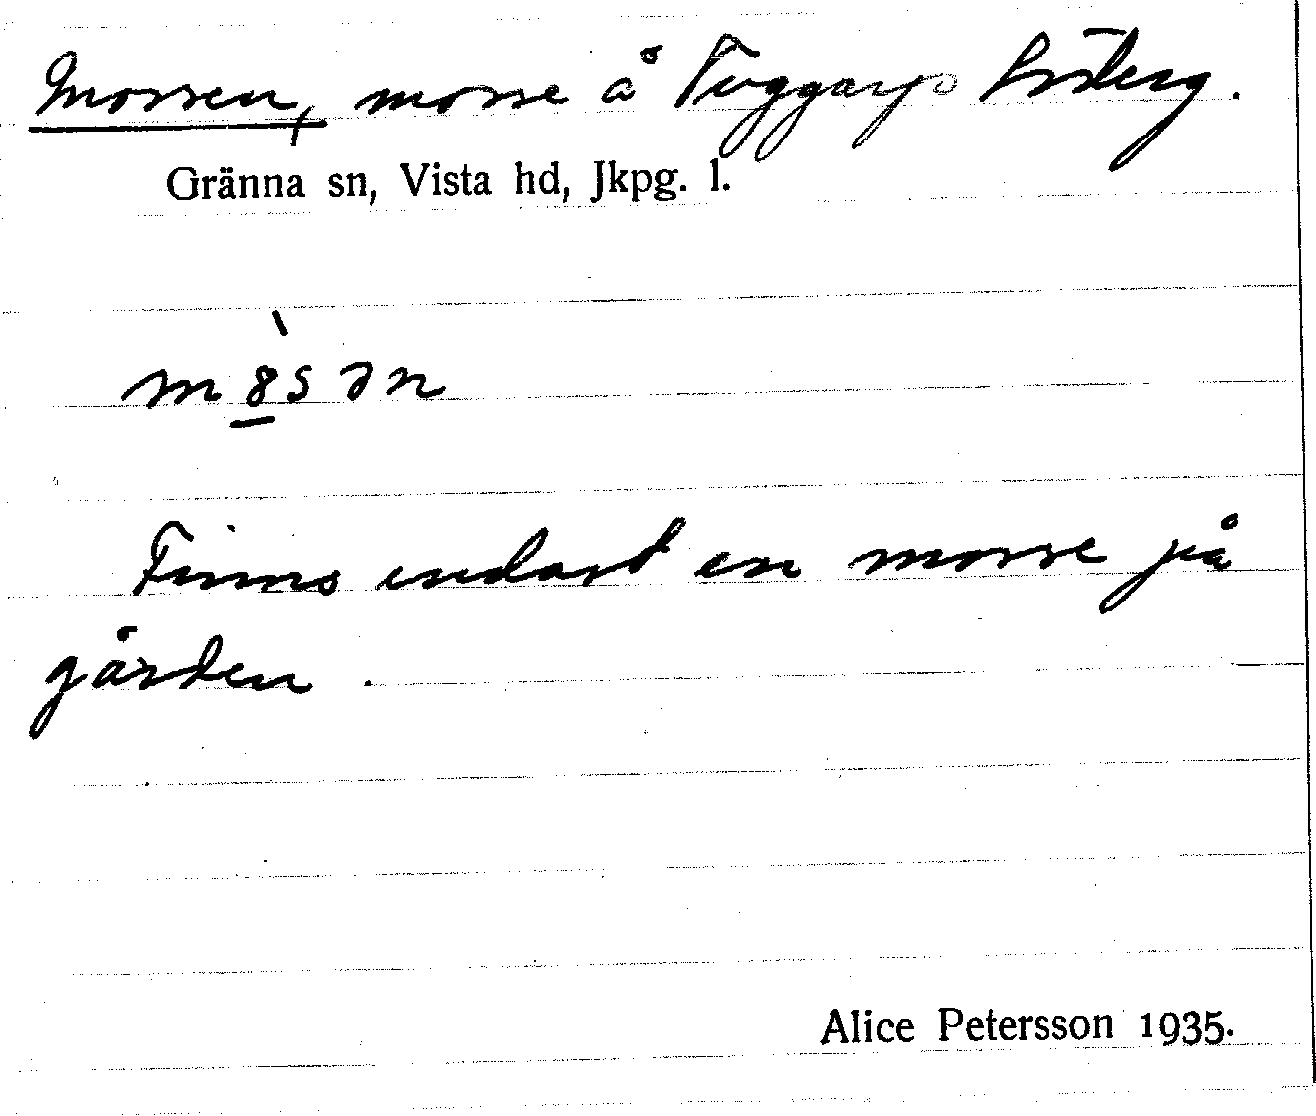 Mossen, mosse å Vuggarps Söderg.
Gränna sn, Vista hd, Jkpg. l.
m8̲̀sən
Finns endast en mosse på
gården.
Alice Petersson 1935.